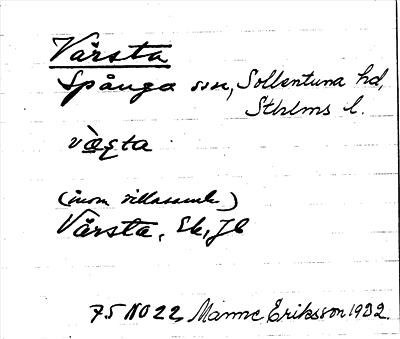 Vårsta
Spånga sn, Sollentuna hd,
Sthlms l.
(inom villasamh.)
Vårsta, Sk, Jb
75 NO 22 Manne Eriksson 1932.